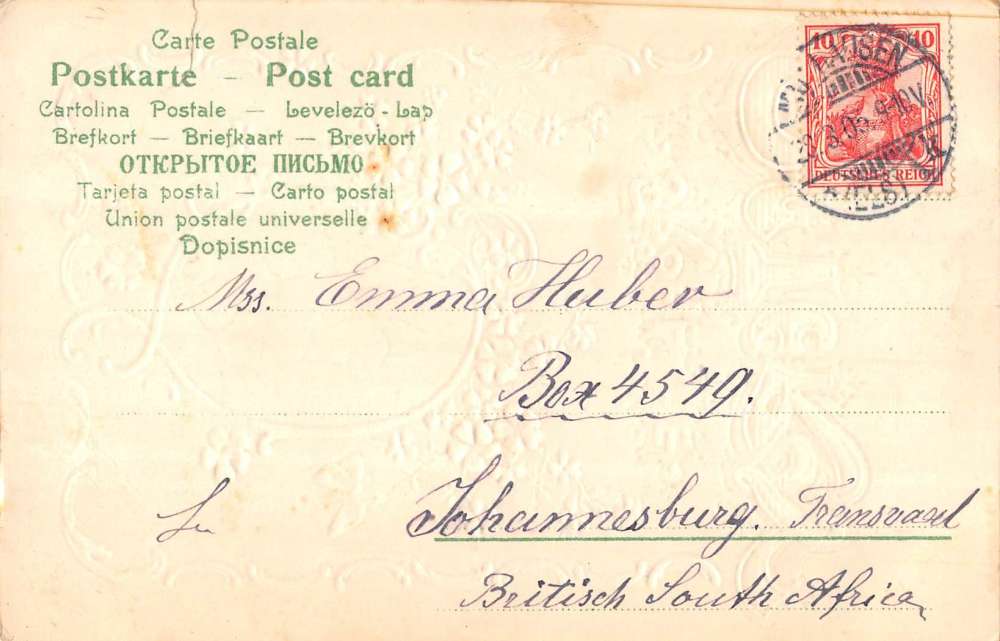 Carte Postale
Postkarte — Post card
Cartolina Postale — Levelezö-Lap
Brefkort — Briefkaart — Brevkort
ОТКРЫТОЕ ПИСЬМО
Tarjeta postal — Carto postal
Union postale universelle
Dopisnice
10 10
DEUTSCHES REICH
(ELS)
Mss. Emma Huber
Box 4549.
In Johannesburg. Transvaal
Britisch South Africa